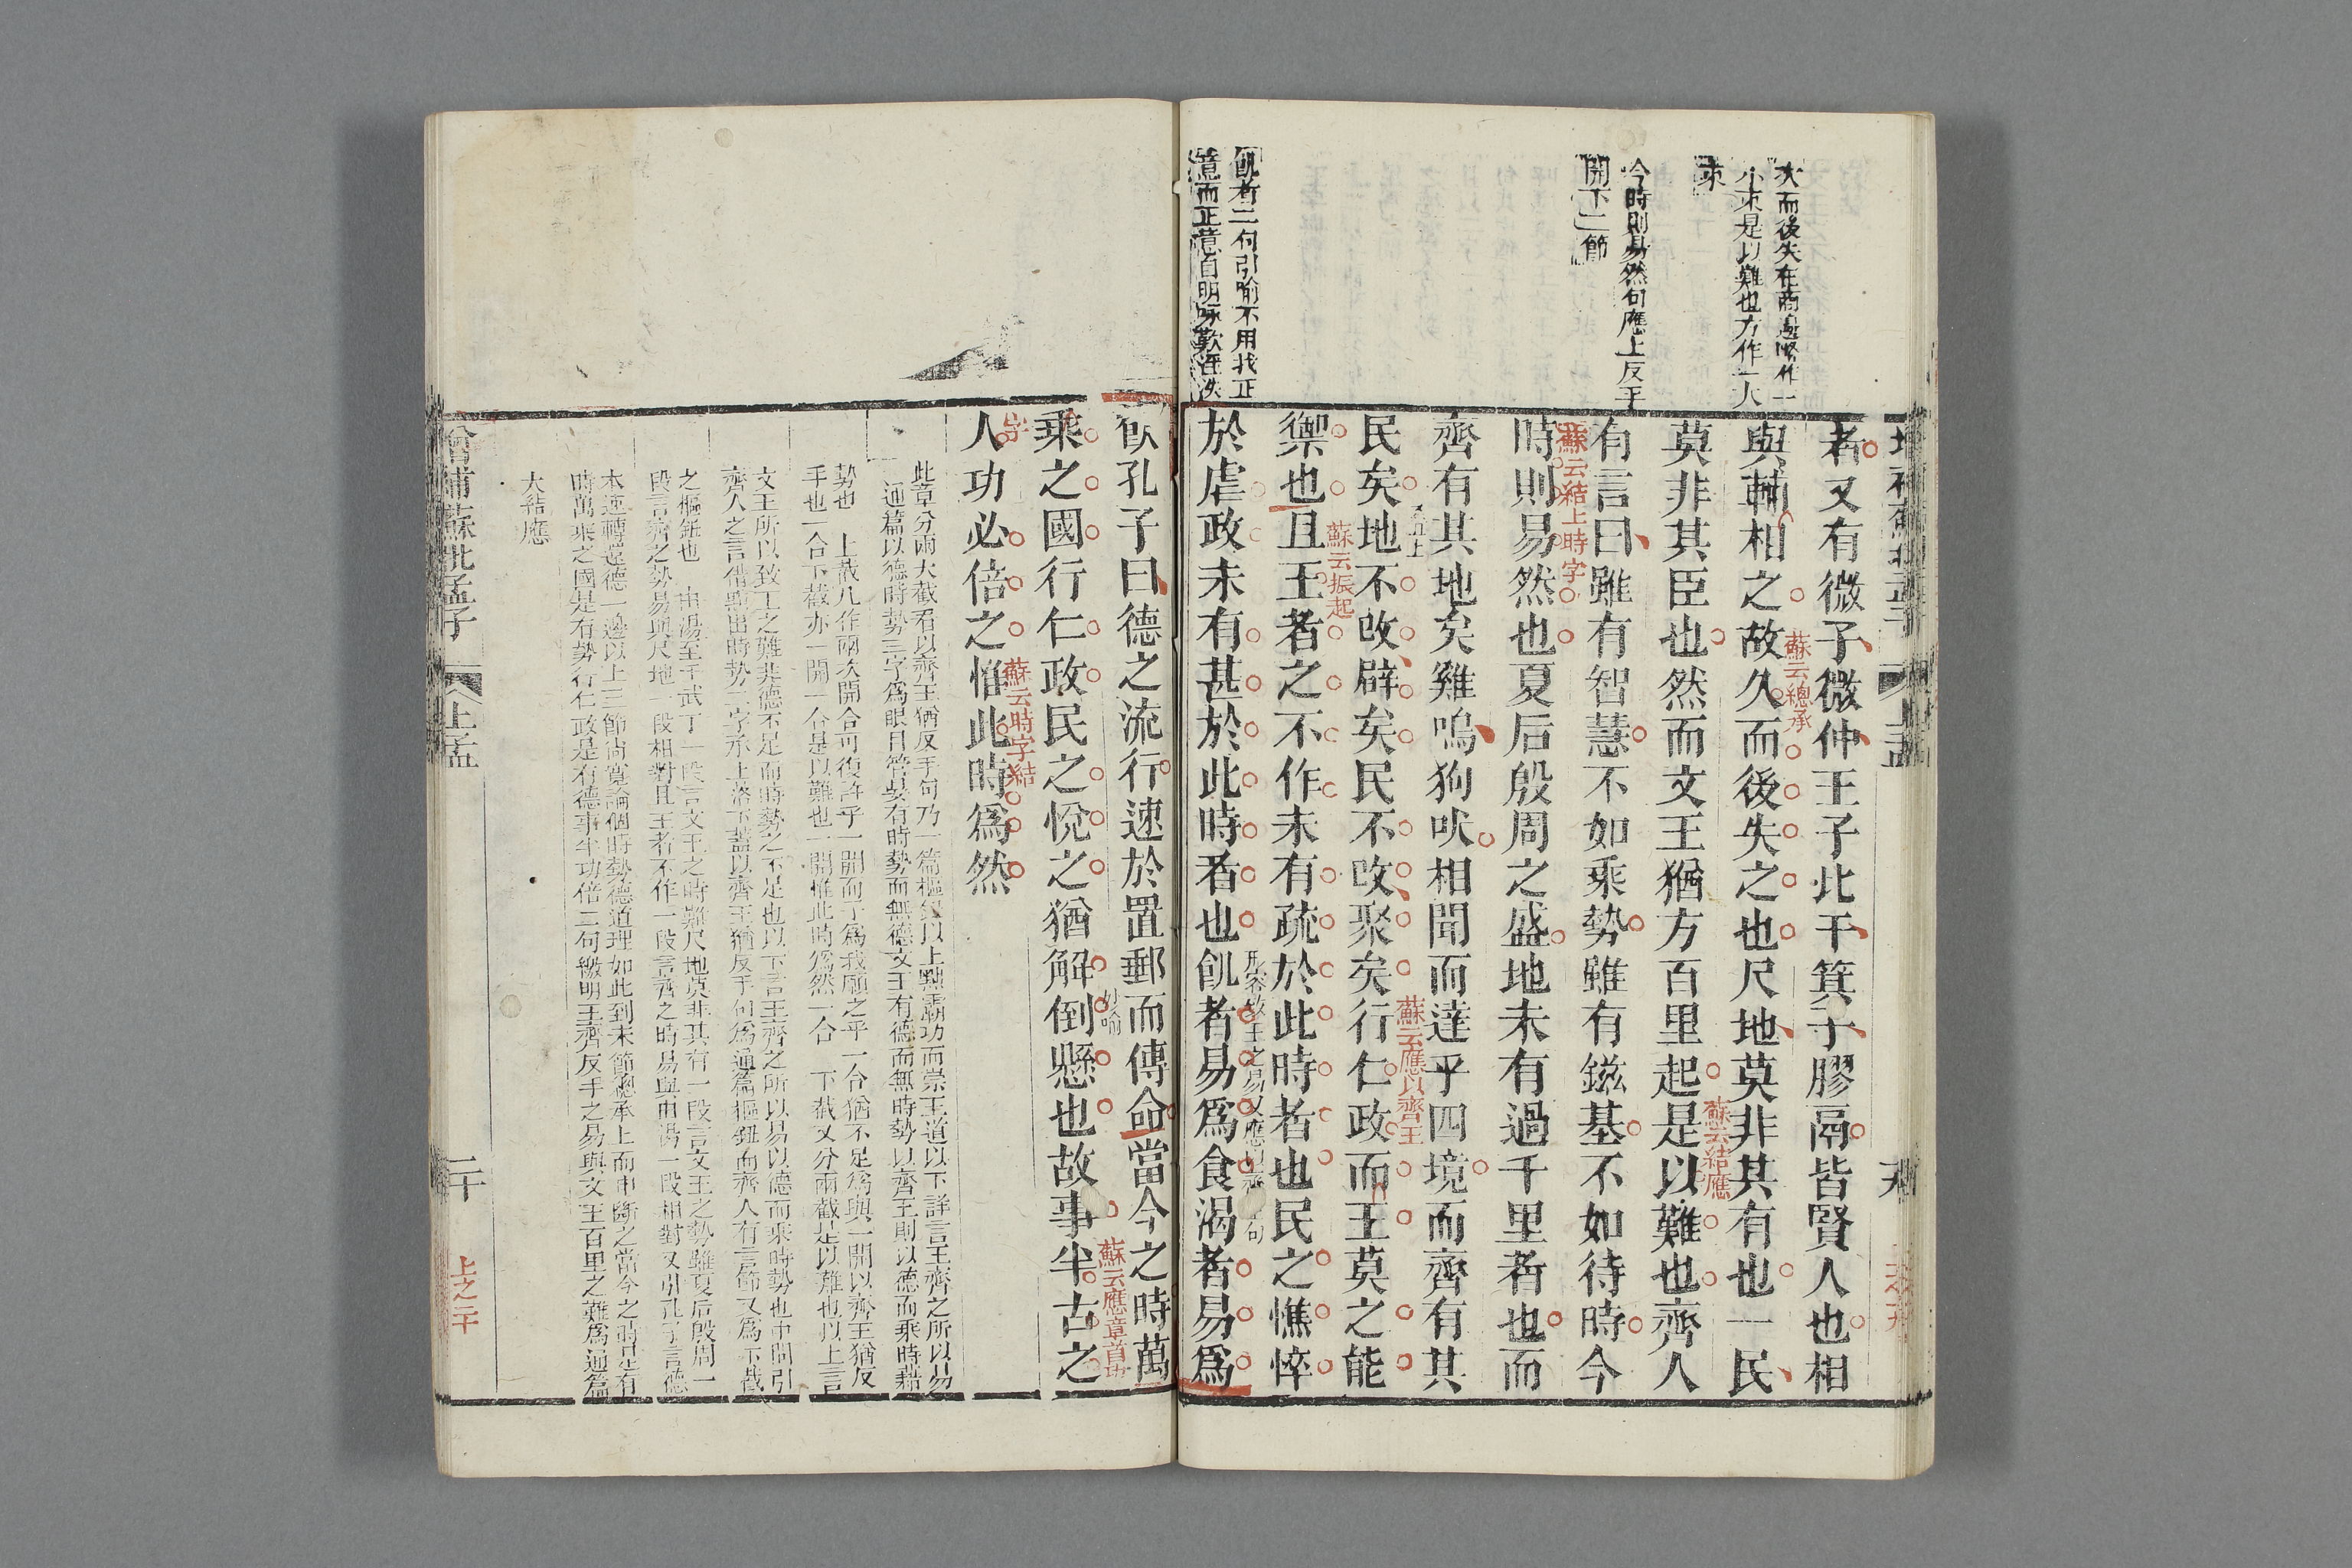 次而後失在商邊喚作一
小束是以難也方作一大
束
今時則易然句應上反手
開下二節
飢者二句引喻不用找正
意而正意自明咏歎淫泆
者又有微子微仲王子比干箕子膠鬲皆賢人也相
與輔相之故久而後失之也尺地莫非其有也一民
蘇云總承
莫非其臣也然而文王猶方百里起是以難也齊人
蘇云結應
有言曰雖有智慧不如乘勢雖有鎡基不如待時今
時則易然也夏后殷周之盛地未有過千里者也而
蘇云結上時字
齊有其地矣雞鳴狗吠相聞而達乎四境而齊有其
民矣地不改辟矣民不改聚矣行仁政而王莫之能
蘇云應以齊王
禦也且王者之不作未有疏於此時者也民之憔悴
蘇云振起
於虐政未有甚於此時者也飢者易爲食渴者易爲
飲孔子曰德之流行速於置郵而傳命當今之時萬
乘之國行仁政民之悅之猶解倒懸也故事半古之
妙喻
蘇云應章首功
人功必倍之惟此時爲然
字
蘇云時字結
此章分兩大截看以齊王猶反手句乃一篇樞紐以上黜霸功而崇王道以下詳言王齊之所以易
通篇以德時勢三字爲眼目管晏有時勢而無德文王有德而無時勢以齊王則以德而乘時藉
勢也 上截凡作兩次開合可復許乎一開而子爲我願之乎一合猶不足爲與一開以齊王猶反
手也一合下截亦一開一合是以難也一開惟此時爲然一合 下截又分兩截是以難也以上言
文王所以致王之難非德不足而時勢之不足也以下言王齊之所以易以德而乘時勢也中間引
齊人之言借點出時勢二字承上落下蓋以齊王猶反手句爲通篇樞紐而齊人有言節又爲下截
之樞紐也 由湯至于武丁一段言文王之時難尺地莫非其有一段言文王之勢難夏后殷周一
段言齊之勢易與尺地一段相對且王者不作一段言齊之時易與由湯一段相對又引孔子言德
本速轉運德一邊以上三節尚寬論個時勢德道理如此到末節總承上而申斷之當今之時是有
時萬乘之國是有勢行仁政是有德事半功倍二句繳明王齊反手之易與文王百里之難爲通篇
大結應
增補蘇批孟子
上孟
二十
上之二十